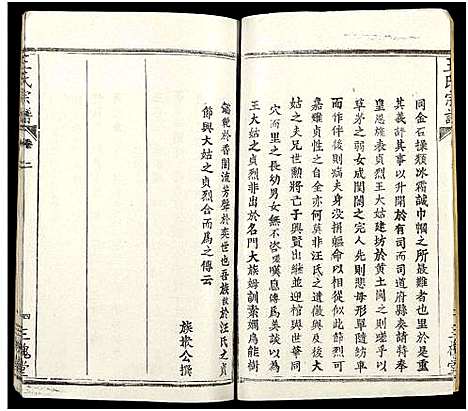 王氏宗譜
同金石操類冰霜誠巾幗之所最難者也里於是高
其義評其事以升聞於有司而司道府縣奏請特奉
皇恩旌表貞烈王大姑建坊於黃土關之間則是以
草茅之弱女成閨閫之完人先則悲母形單隨侍
而作伴後則病夫身沒捐軀命以相從斯節烈可
嘉雖貞性之全亦何莫非汪氏之遺徽與及後大
姑之夫兄世勲將亡子夫婦迎棺啟與世華同
穴而里之長幼男女無不咨嗟嘆息傳爲美談以為
王大姑之貞烈非出於名門大族姆訓素嫻烏能樹
懿範於香閨流芳聲於奕世也吾族故於汪氏之貞
節與大姑之貞烈合而為之傳云
族撒公撰
王氏宗譜
卷二
四
三槐堂